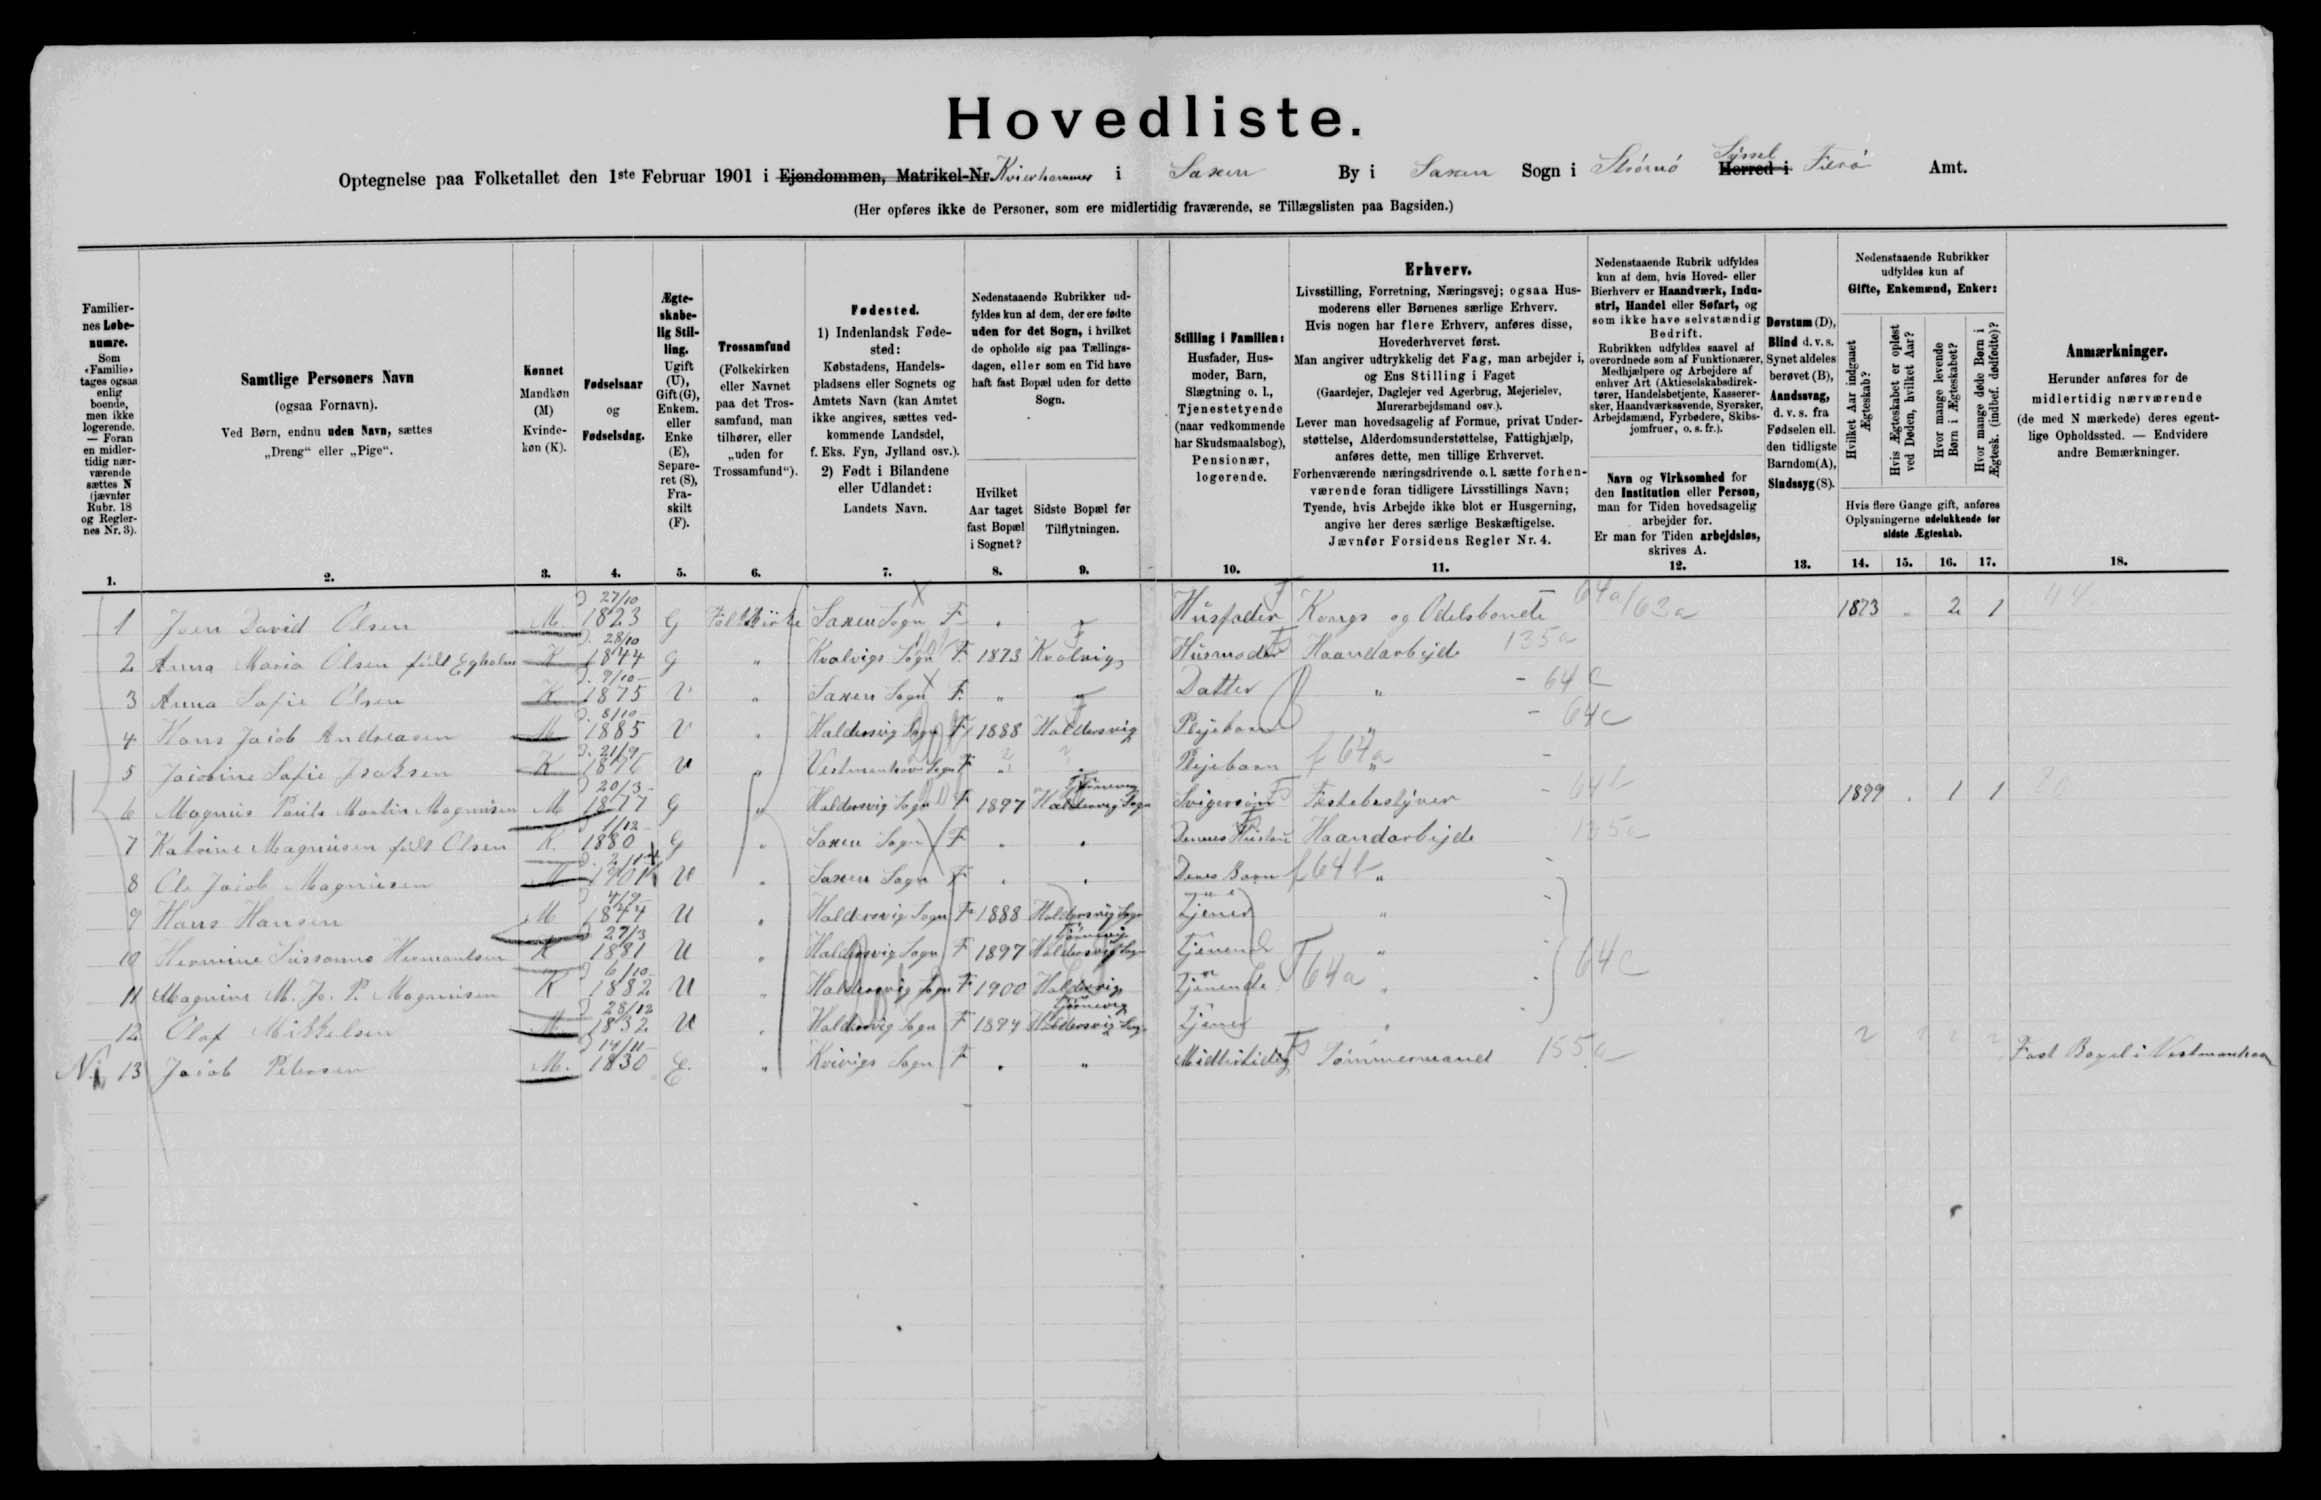 Hovedliste.
Optegnelse paa Folketallet den 1ste Februar 1901 i Ejendommen, Matrikel-Nr. i Saxen By i Saxen Sogn i Strömö Herred i Syssel Færö Amt.
(Her opføres ikke de Personer, som ere midlertidig fraværende, se Tillægslisten paa Bagsiden.)
Familiernes Løbenumre. Som «Familie» tages ogsaa enlig boende, men ikke logerende. — Foran en midlertidig nærværende sættes N (jævnfør Rubr. 18 og Reglernes Nr. 3).
Samtlige Personers Navn (ogsaa Fornavn). Ved Børn, endnu uden Navn, sættes „Dreng“ eller „Pige“.
Kønnet Mandkøn (M) Kvindekøn (K).
Fødselsaar og Fødselsdag.
Ægteskabelig Stilling. Ugift (U), Gift (G), Enkem. eller Enke (E), Separeret (S), Fraskilt (F).
Trossamfund (Folkekirken eller Navnet paa det Trossamfund, man tilhører, eller „uden for Trossamfund“).
Fødested. 1) Indenlandsk Fødested: Købstadens, Handelspladsens eller Sognets og Amtets Navn (kan Amtet ikke angives, sættes vedkommende Landsdel, f. Eks. Fyn, Jylland osv.). 2) Født i Bilandene eller Udlandet: Landets Navn.
Nedenstaaende Rubrikker udfyldes kun af dem, der ere fødte uden for det Sogn, i hvilket de opholde sig paa Tællingsdagen, eller som en Tid have haft fast Bopæl uden for dette Sogn.
Hvilket Aar taget fast Bopæl i Sognet?
Sidste Bopæl før Tilflytningen.
Stilling i Familien: Husfader, Husmoder, Barn, Slægtning o. l., Tjenestetyende (naar vedkommende har Skudsmaalsbog), Pensionær, logerende.
Erhverv.
Livsstilling, Forretning, Næringsvej; ogsaa Husmoderens eller Børnenes særlige Erhverv.
Hvis nogen har flere Erhverv, anføres disse, Hovederhvervet først.
Man angiver udtrykkelig det Fag, man arbejder i, og Ens Stilling i Faget
(Gaardejer, Daglejer ved Agerbrug, Mejerielev, Murerarbejdsmand osv.).
Lever man hovedsagelig af Formue, privat Understøttelse, Alderdomsunderstøttelse, Fattighjælp, anføres dette, men tillige Erhvervet.
Forhenværende næringsdrivende o. l. sætte forhenværende foran tidligere Livsstillings Navn; Tyende, hvis Arbejde ikke blot er Husgerning, angive her deres særlige Beskæftigelse.
Jævnfør Forsidens Regler Nr. 4.
Nedenstaaende Rubrik udfyldes kun af dem, hvis Hoved- eller Bierhverv er Haandværk, Industri, Handel eller Søfart, og som ikke have selvstændig Bedrift.
Rubrikken udfyldes saavel af overordnede som af Funktionærer, Medhjælpere og Arbejdere af enhver Art (Aktieselskabsdirektører, Handelsbetjente, Kasserersker, Haandværkssvende, Syersker, Arbejdsmænd, Fyrbødere, Skibsjomfruer, o. s. fr.).
Navn og Virksomhed for den Institution eller Person, man for Tiden hovedsagelig arbejder for.
Er man for Tiden arbejdsløs, skrives A.
Døvstum (D), Blind d. v. s. Synet aldeles berøvet (B), Aandssvag, d. v. s. fra Fødselen ell. den tidligste Barndom (A), Sindssyg (S).
Nedenstaaende Rubrikker udfyldes kun af Gifte, Enkemænd, Enker:
Hvilket Aar indgaaet Ægteskab?
Hvis Ægteskabet er opløst ved Døden, hvilket Aar?
Hvor mange levende Børn i Ægteskabet?
Hvor mange døde Børn i Ægtesk. (indbef. dødfødte)?
Hvis flere Gange gift, anføres Oplysningerne udelukkende for sidste Ægteskab.
Anmærkninger.
Herunder anføres for de midlertidig nærværende (de med N mærkede) deres egentlige Opholdssted. — Endvidere andre Bemærkninger.
1. 2. 3. 4. 5. 6. 7. 8. 9. 10. 11. 12. 13. 14. 15. 16. 17. 18.
1 Joen David Olsen M. 27/10 1823 G Folkekirke Saxen Sogn F. Husfader Kongs og Odelsbonde 64a/62a 1873 2 1
2 Anna Maria Olsen født Egholm K 28/10 1844 G " Kvalvigs Sogn F. 1873 Kvalvig Husmoder Haandarbejde 135a
3 Anna Sofie Olsen K 9/10 1875 U " Saxen Sogn F. " Datter " 64c
4 Hans Jacob Andreasen M 8/10 1885 U " Haldersvig Sogn F 1888 Haldersvig Plejebarn " 64c
5 Jacobine Sofie Isaksen K 21/9 U " Vestmanhavn Sogn F Plejebarn " f 64a
6 Magnus Pauli Martin Magnusen M 20/3 1877 G " Haldersvig Sogn F 1897 Tjörnevig Haldersvig Sogn Svigersön Fæstebestyrer 64b 1899 1 1
7 Katrine Magnusen født Olsen K. 1/12 1880 G " Saxen Sogn F Dennes Hustru Haandarbejde 135a
8 Ole Jacob Magnusen M 1901 U " Saxen Sogn F Deres Barn " f 64b
9 Hans Hansen M 4/9 1844 U " Haldersvig Sogn F 1888 Haldersvig Sogn Tjener "
10 Hermine Sussanne Hermantsen K 27/3 1881 U " Haldersvig Sogn F 1897 Tjörnevig Haldersvig Sogn Tjenende "
11 Magnine M. Jo. P. Magnusen K 6/10 1882 U " Haldersvig Sogn F 1900 Haldersvig Tjenende 64a " 64c
12 Olaf Mikkelsen M. 28/12 1832 U " Haldersvig Sogn F 1894 Tjörnevig Haldersvig Sogn Tjener "
N. 13 Jacob Petersen M. 14/11 1830 E. " Kvivigs Sogn F " Midlertidig Tömmermand 155a Fast Bopæl i Vestmanhavn